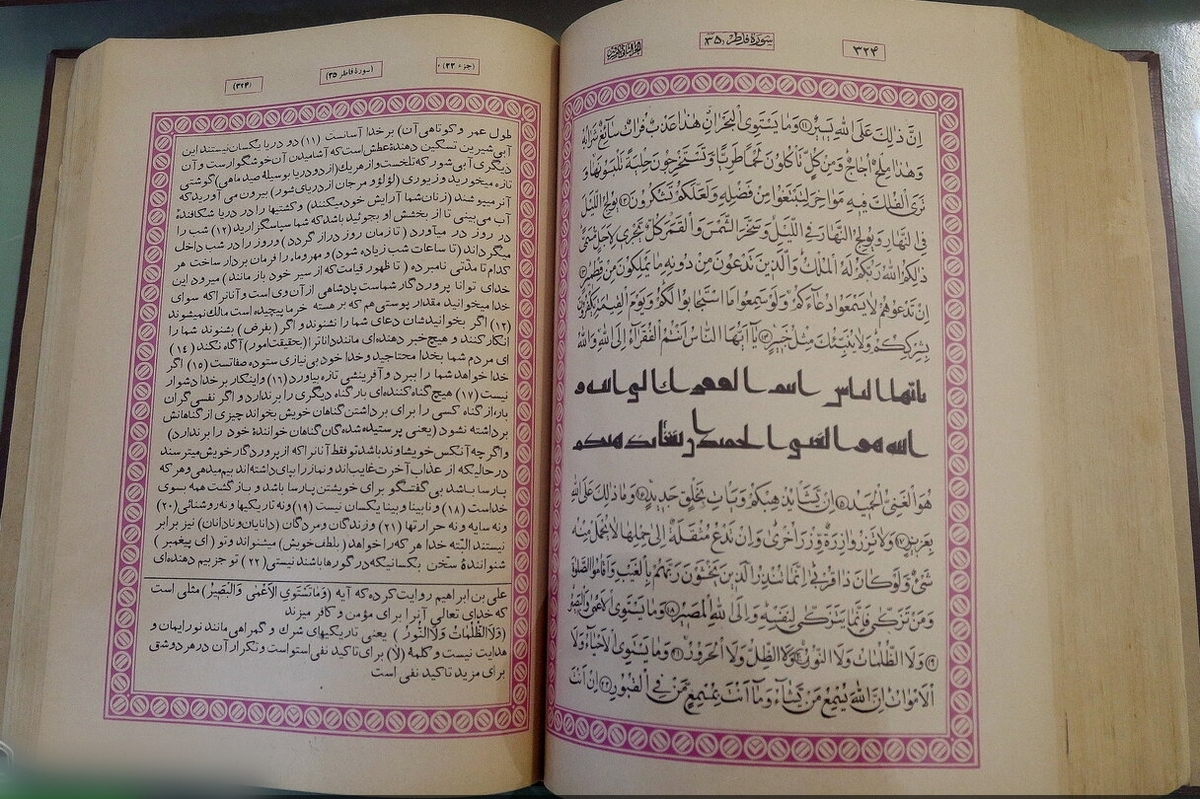 ۳۲۴
سورة فاطر «۳۵»
اِنَّ ذٰلِكَ عَلَى اللّٰهِ يَسيرٌ ۱۱ وَمَا يَسْتَوِى الْبَحْرَانِ هٰذَا عَذْبٌ فُرَاتٌ سَآئِغٌ شَرَابُهُ
وَهٰذَا مِلْحٌ اُجَاجٌ وَمِنْ كُلٍّ تَاْكُلُونَ لَحْمًا طَرِيًّا وَتَسْتَخْرِجُونَ حِلْيَةً تَلْبَسُونَهَا وَ
تَرَى الْفُلْكَ فيهِ مَوَاخِرَ لِتَبْتَغُوا مِنْ فَضْلِهِ وَلَعَلَّكُمْ تَشْكُرُونَ ۱۲ يُولِجُ اللَّيْلَ
فِى النَّهَارِ وَيُولِجُ النَّهَارَ فِى اللَّيْلِ وَسَخَّرَ الشَّمْسَ وَالْقَمَرَ كُلٌّ يَجْرى لِاَجَلٍ مُسَمًّى
ذٰلِكُمُ اللّٰهُ رَبُّكُمْ لَهُ الْمُلْكُ وَالَّذينَ تَدْعُونَ مِنْ دُونِهِ مَا يَمْلِكُونَ مِنْ قِطْميرٍ ۱۳
اِنْ تَدْعُوهُمْ لَا يَسْمَعُوا دُعَآءَكُمْ وَلَوْ سَمِعُوا مَا اسْتَجَابُوا لَكُمْ وَيَوْمَ الْقِيٰمَةِ يَكْفُرُونَ
بِشِرْكِكُمْ وَلَا يُنَبِّئُكَ مِثْلُ خَبيرٍ ۱۴ يَآ اَيُّهَا النَّاسُ اَنْتُمُ الْفُقَرَآءُ اِلَى اللّٰهِ وَاللّٰهُ
یاتها الناس انتم الفقراء الی الله و
الله هو الغنی الحمید ان یشا یذهبکم
هُوَ الْغَنِىُّ الْحَميدُ ۱۵ اِنْ يَشَاْ يُذْهِبْكُمْ وَيَاْتِ بِخَلْقٍ جَديدٍ ۱۶ وَمَا ذٰلِكَ عَلَى اللّٰهِ
بِعَزيزٍ ۱۷ وَلَا تَزِرُ وَازِرَةٌ وِزْرَ اُخْرٰى وَاِنْ تَدْعُ مُثْقَلَةٌ اِلٰى حِمْلِهَا لَا يُحْمَلْ مِنْهُ
شَىْءٌ وَلَوْ كَانَ ذَا قُرْبٰى اِنَّمَا تُنْذِرُ الَّذينَ يَخْشَوْنَ رَبَّهُمْ بِالْغَيْبِ وَاَقَامُوا الصَّلٰوةَ
وَمَنْ تَزَكّٰى فَاِنَّمَا يَتَزَكّٰى لِنَفْسِهِ وَاِلَى اللّٰهِ الْمَصيرُ ۱۸ وَمَا يَسْتَوِى الْاَعْمٰى وَالْبَصيرُ
۱۹ وَلَا الظُّلُمَاتُ وَلَا النُّورُ ۲۰ وَلَا الظِّلُّ وَلَا الْحَرُورُ ۲۱ وَمَا يَسْتَوِى الْاَحْيَآءُ وَلَا
الْاَمْوَاتُ اِنَّ اللّٰهَ يُسْمِعُ مَنْ يَشَآءُ وَمَآ اَنْتَ بِمُسْمِعٍ مَنْ فِى الْقُبُورِ ۲۲ اِنْ اَنْتَ
(جزء ۲۲)
(سورة فاطر ۳۵)
(۳۲۴)
طول عمر و کوتاهی آن) بر خدا آسانست (۱۱) دو دریا یکسان نیستند این
آبی شیرین تسکین دهندهٔ عطش است که آشامیدن آن خوشگوارست و آن
دیگری آبی شور که تلخست و از هر یك (از دو دریا بوسیلهٔ صید ماهی) گوشتی
تازه میخورید و زیوری (لؤلؤ و مرجان از دریای شور) بیرون می آورید که
آنرا میپوشند (زنان شما آرایش خود میکنند) و کشتیها را در دریا شکافندهٔ
آب می بینی تا از بخشش او بجوئید باشد که شما سپاسگزارید (۱۲) شب را
در روز در میآورد (تا زمان روز دراز گردد) و روز را در شب داخل
میگرداند (تا ساعات شب زیاده شود) و مهر و ماه را فرمان بردار ساخت هر
کدام تا مدّتی نامبرده ( تا ظهور قیامت که از سیر خود باز مانند) میرود این
خدای توانا پروردگار شماست پادشاهی از آن وی است و آنانرا که سوای
خدا میخوانید مقدار پوستی هم که بر هسته خرما پیچیده است مالك نمیشوند
(۱۳) اگر بخوانیدشان دعای شما را نشنوند و اگر (بفرض) بشنوند شما را
انکار کنند و هیچ خبر دهنده ای مانند دانا ترا (بحقیقت امور) آگاه نکند (۱۴)
ای مردم شما بخدا محتاجید و خدا خود بی نیازی ستوده صفاتست (۱۵) اگر
خدا خواهد شما را ببرد و آفرینشی تازه بیاورد (۱۶) و اینکار بر خدا دشوار
نیست (۱۷) هیچ گناه کننده ای بار گناه دیگری را برندارد و اگر نفسی گران
بار از گناه کسی را برای برداشتن گناهان خویش بخواند چیزی از گناهانش
برداشته نشود (یعنی پرستیده شدگان گناهان خوانندهٔ خود را برندارد)
و اگر چه آنکس خویشاوند باشد تو فقط آنانرا که از پروردگار خویش میترسند
در حالیکه از عذاب آخرت غایب اند و نماز را بپای داشته اند بیم میدهی و هر که
پارسا باشد بی گفتگو برای خویشتن پارسا باشد و بازگشت همه بسوی
خداست (۱۸) و نابینا و بینا یکسان نیست (۱۹) و نه تاریکیها و نه روشنائی (۲۰)
و نه سایه و نه حرارتها (۲۱) و زندگان و مردگان (دانایان و نادانان) نیز برابر
نیستند البتّه خدا هر که را خواهد (بلطف خویش) میشنواند و تو ( ای پیغمبر )
شنوانندهٔ سخن بکسانیکه در گورها باشند نیستی (۲۲) تو جز بیم دهنده ای
علی بن ابراهیم روایت کرده که آیه (وَمَا يَسْتَوِى الْاَعْمٰى وَالْبَصيرُ) مثلی است
که خدای تعالی آنرا برای مؤمن و کافر میزند
(وَلَا الظُّلُمَاتُ وَلَا النُّورُ ) یعنی تاریکیهای شرك و گمراهی مانند نور ایمان و
هدایت نیست و کلمهٔ (لا) برای تاکید نفی استواست و تکرار آن در هر دو شق
برای مزید تاکید نفی است